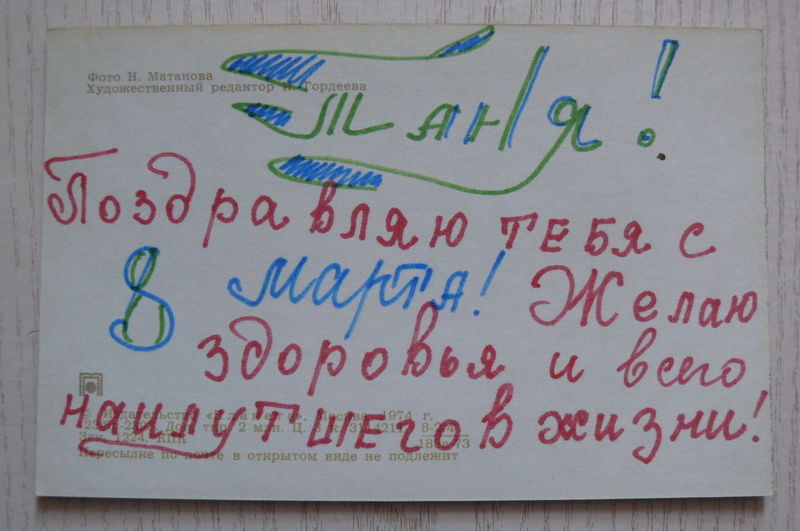 Фото Н. Матанова
Художественный редактор Гордеева
Таня!
Поздравляю тебя с
8 Марта! Желаю
здоровья и всего
наилутшего в жизни!
© Издательство «Планета». Москва 1974 г.
Зак. 1224. КПК
Пересылке по почте в открытом виде не подлежит